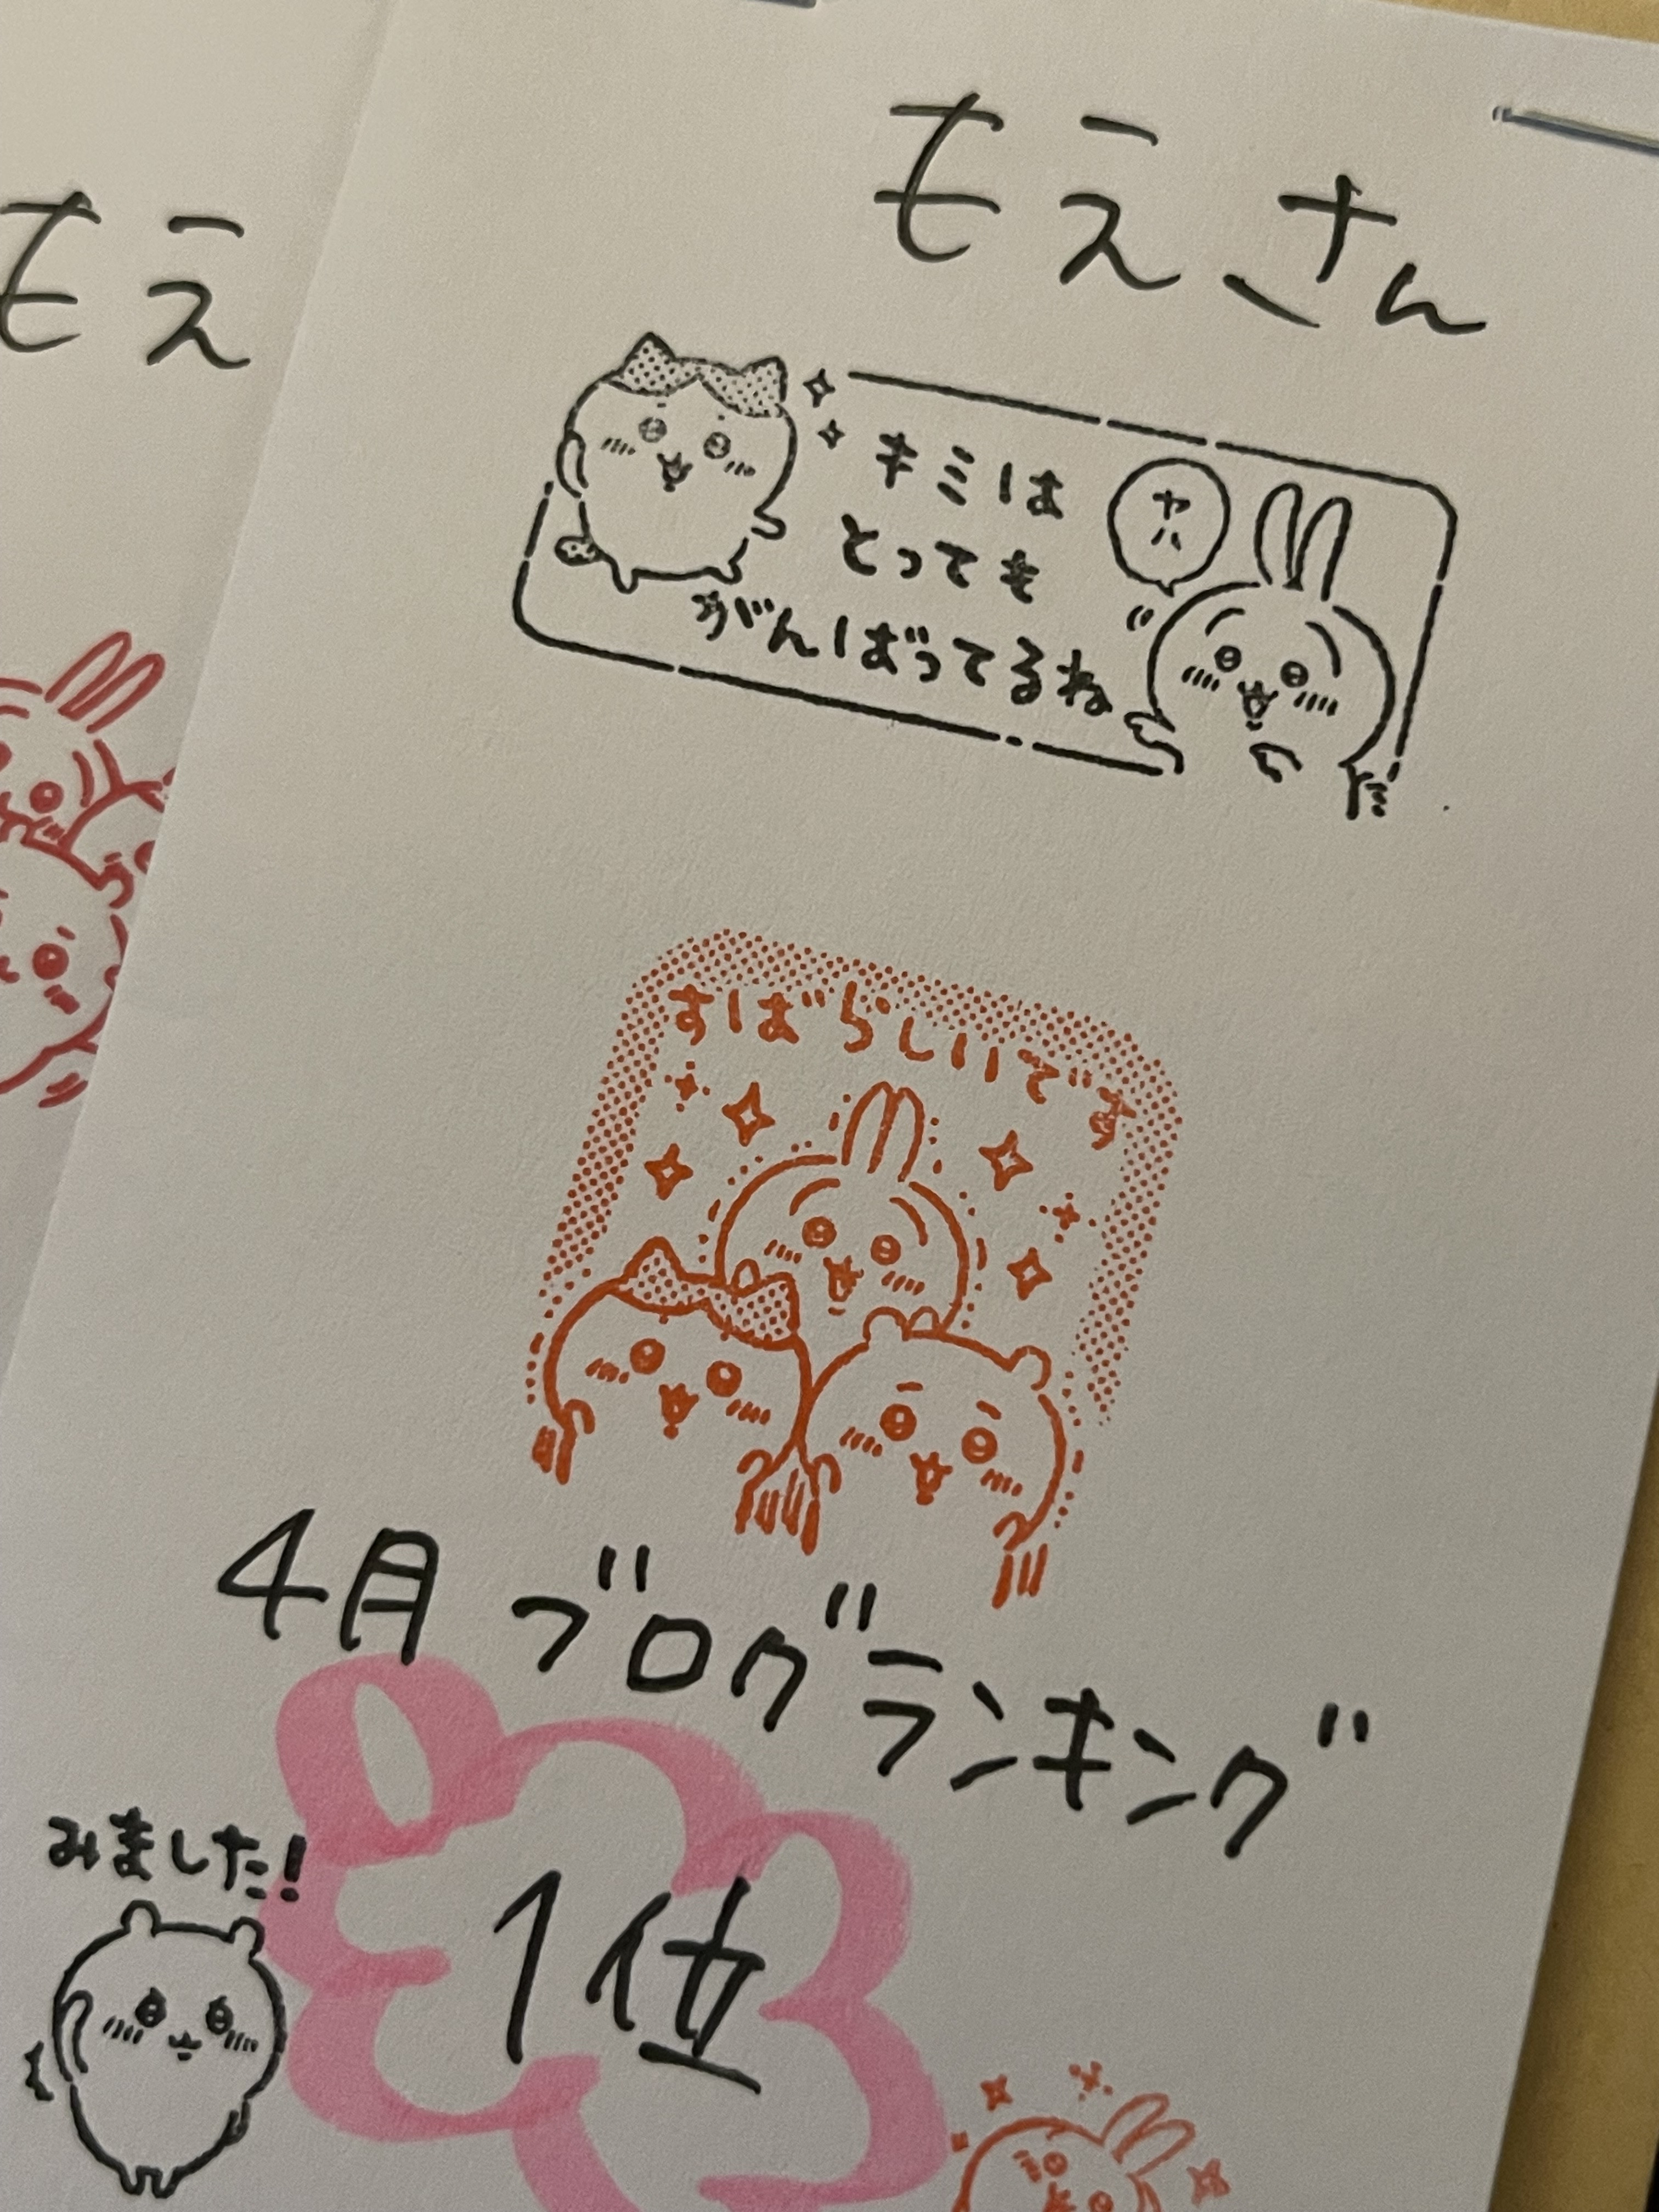 もえ
もえさん
キミは
とっても
がんばってるね
ヤハ
すばらしいです
4月 ブログランキング
みました!
1位